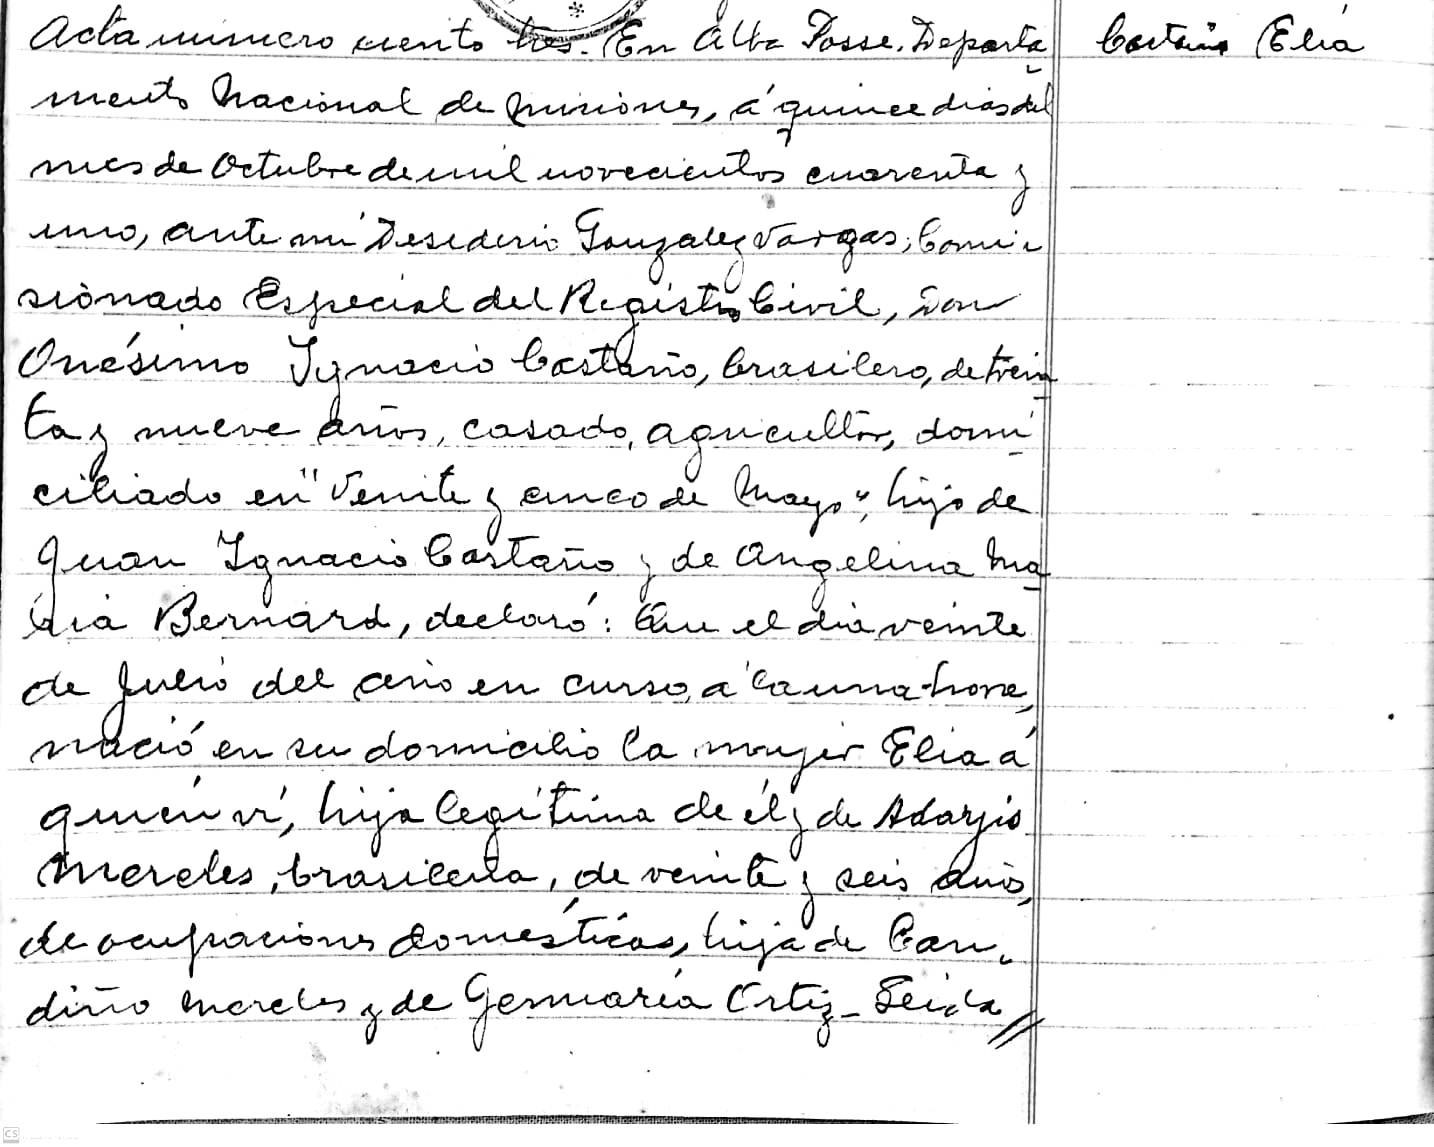 Acta número ciento tres. En Alba Posse, Departa
mento Nacional de Misiones, á quince dias del
mes de Octubre de mil novecientos cuarenta y
uno, ante mi Desiderio Gonzalez Vargas, Comi
sionado Especial del Registro Civil, Don
Onésimo Ignacio Castaño, brasilero, de trein
ta y nueve años, casado, agricultor, domi
ciliado en "Veinte y cinco de Mayo", hijo de
Juan Ignacio Castaño y de Angelina Ma
ria Bernard, declaró: Que el dia veinte
de Julio del año en curso, á la una hora,
nació en su domicilio la mujer Elia á
quien ví, hija legítima de él y de Adargis
Mereles, brasilera, de veinte y seis años,
de ocupaciones domésticas, hija de Can
diño Mereles y de Genmaria Ortiz_ Leida //
Castaño Elia
CS